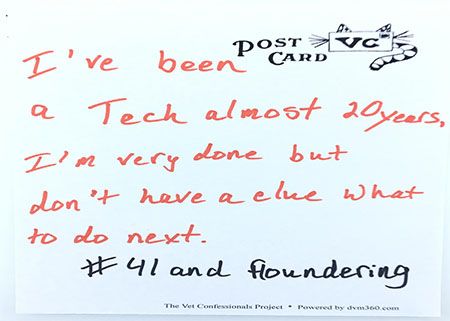 POST CARD
VC
I've been
a Tech almost 20years.
I'm very done but
don't have a clue what
to do next.
#41 and floundering
The Vet Confessionals Project * Powered by dvm360.com